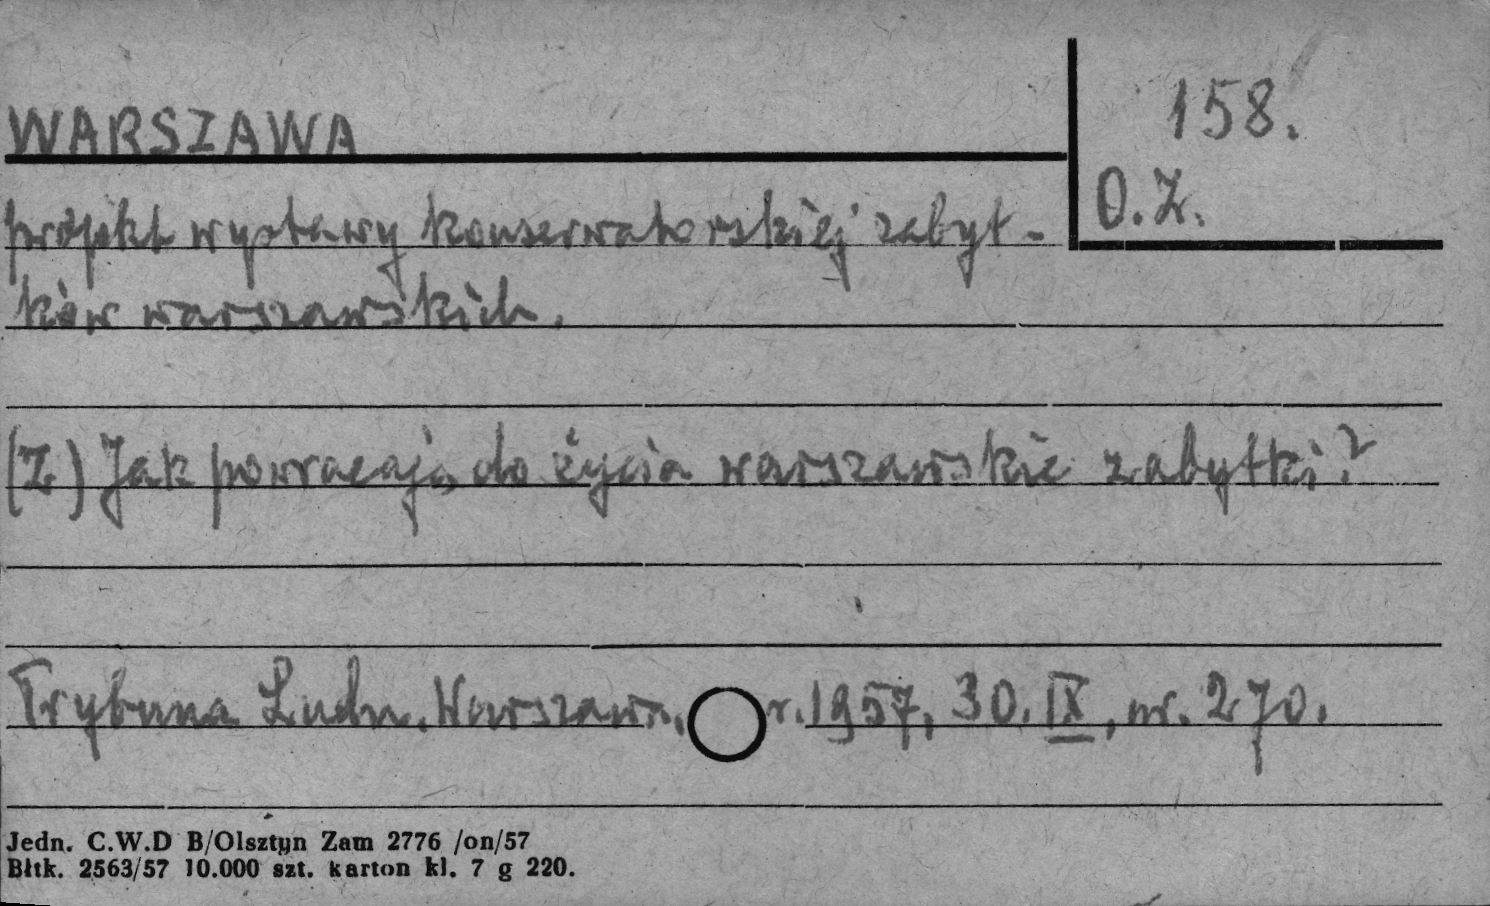 WARSZAWA
158.
O.Z.
projekt wystawy konserwatorskiej zabyt-
ków warszawskich.
(Z) Jak powracają do życia warszawskie zabytki?
Trybuna Ludu. Warszawa. r. 1957, 30. IX, nr. 270.
Jedn. C.W.D B/Olsztyn Zam 2776 /on/57
Bltk. 2563/57 10.000 szt. karton kl. 7 g 220.